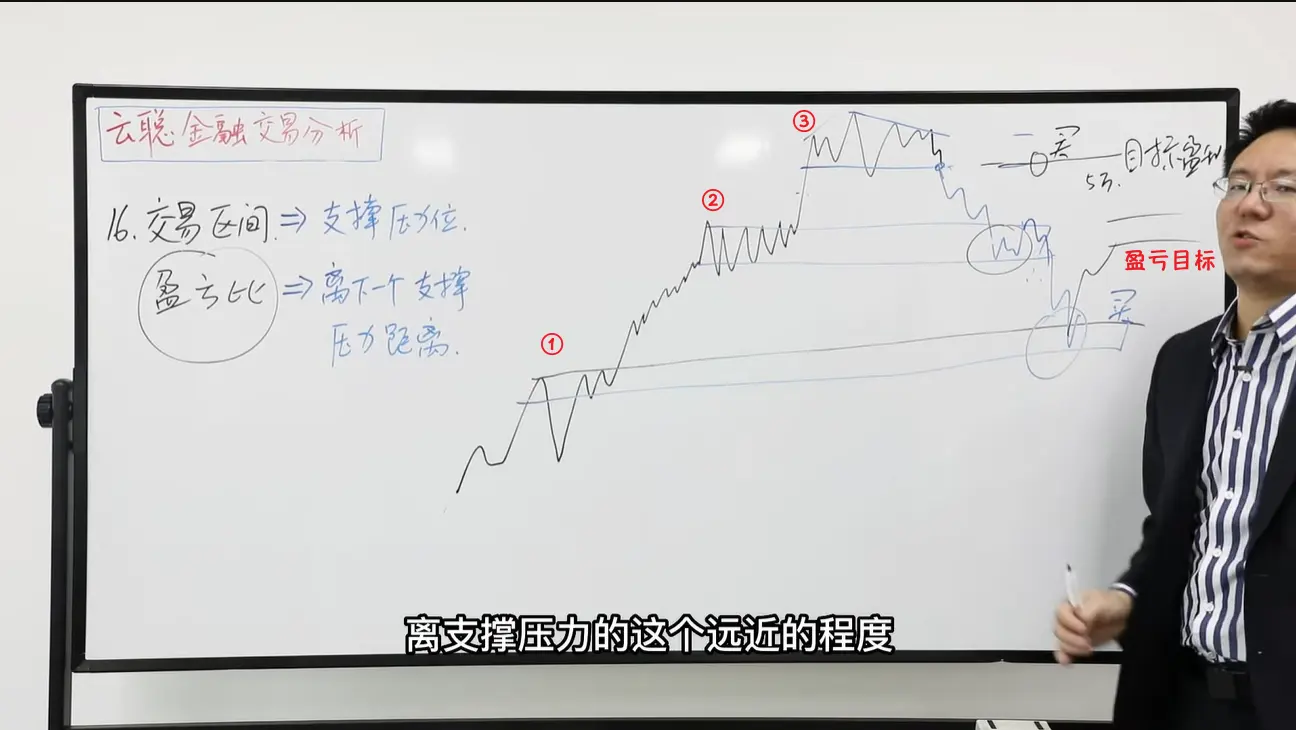 云聪金融交易分析
16. 交易区间 ⇒ 支撑压力位.
盈亏比 ⇒ 离下一个支撑
压力距离.
①
②
③
买
目标盈
5万.
盈亏目标
买
离支撑压力的这个远近的程度